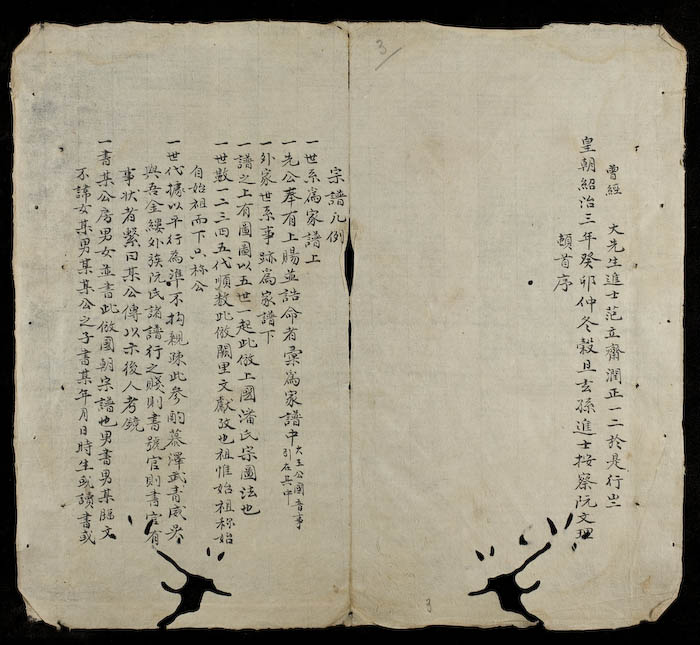 3
曾經　大先生進士范立齋潤正一二於是行㞢
皇朝紹治三年癸卯仲冬穀旦玄孫進士按察阮文理
頓首序
宗譜凡例
一世系為家譜上
一先公奉有上賜並誥命者彙為家譜中大王公國音事引在其中
一外家世系事跡為家譜下
一譜之上有圖圖以五世一起此倣上國潘氏宗圖法也
一世數一二三四五代順数此倣闕里文獻攷也祖惟始祖称始
自始祖而下只称公
一世代據以平行為準不拘親疎此參酌慕澤武青威吳
與吾金縷外族阮氏諸譜行之賤則書號官則書官有
事状者繫曰某公傳以示後人考鏡
一書某公房男女並書此倣國朝宗譜也男書男某賜文
不諱女某男某某公之子書某年月日時生或讀書或
3